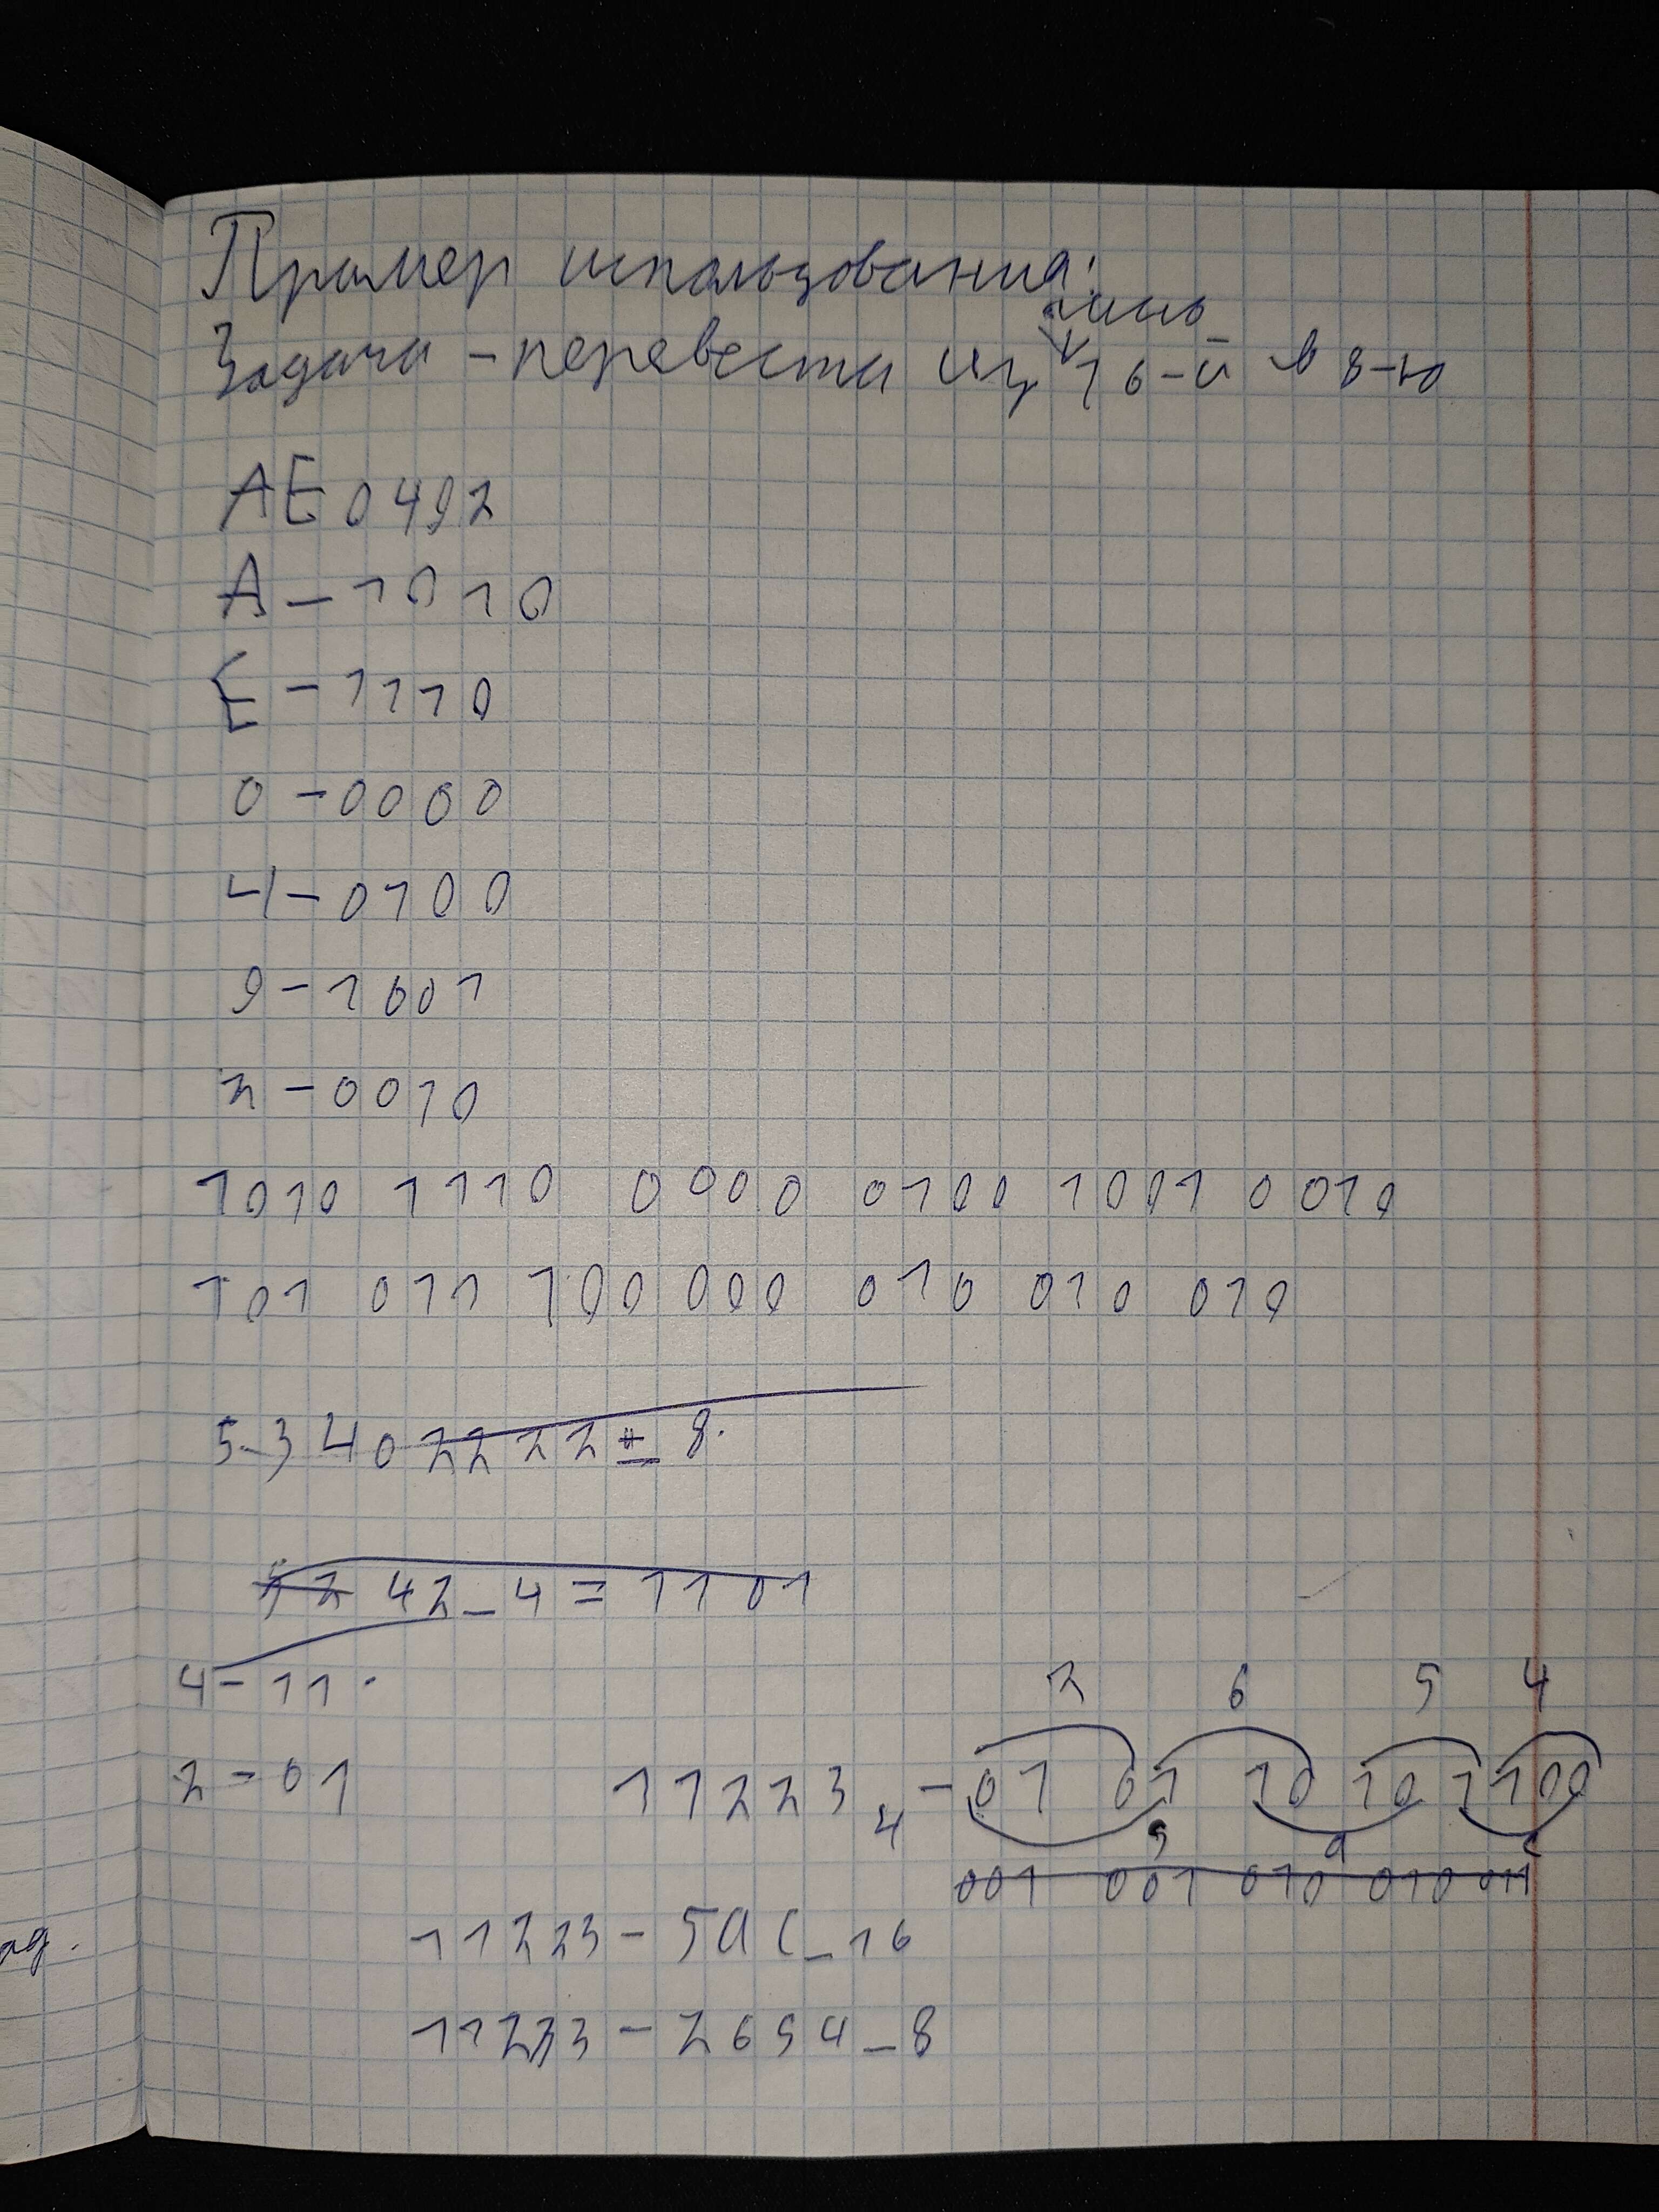 Пример использования:
число
Задача - перевести из 16-й в 8-ю
AE0492
A - 1010
E - 1110
0 - 0000
4 - 0100
9 - 1001
2 - 0010
1010 1110 0000 0100 1001 0010
101 011 100 000 010 010 010
5 3 4 0 2 2 2 2 = 8.
42_4 = 1101
4 - 11
2 - 01
2 6 5 4
11223_4 - 01 01 10 10 1100
5 a c
001 001 010 010 011
11223 - 5ac_16
11223 - 2654_8